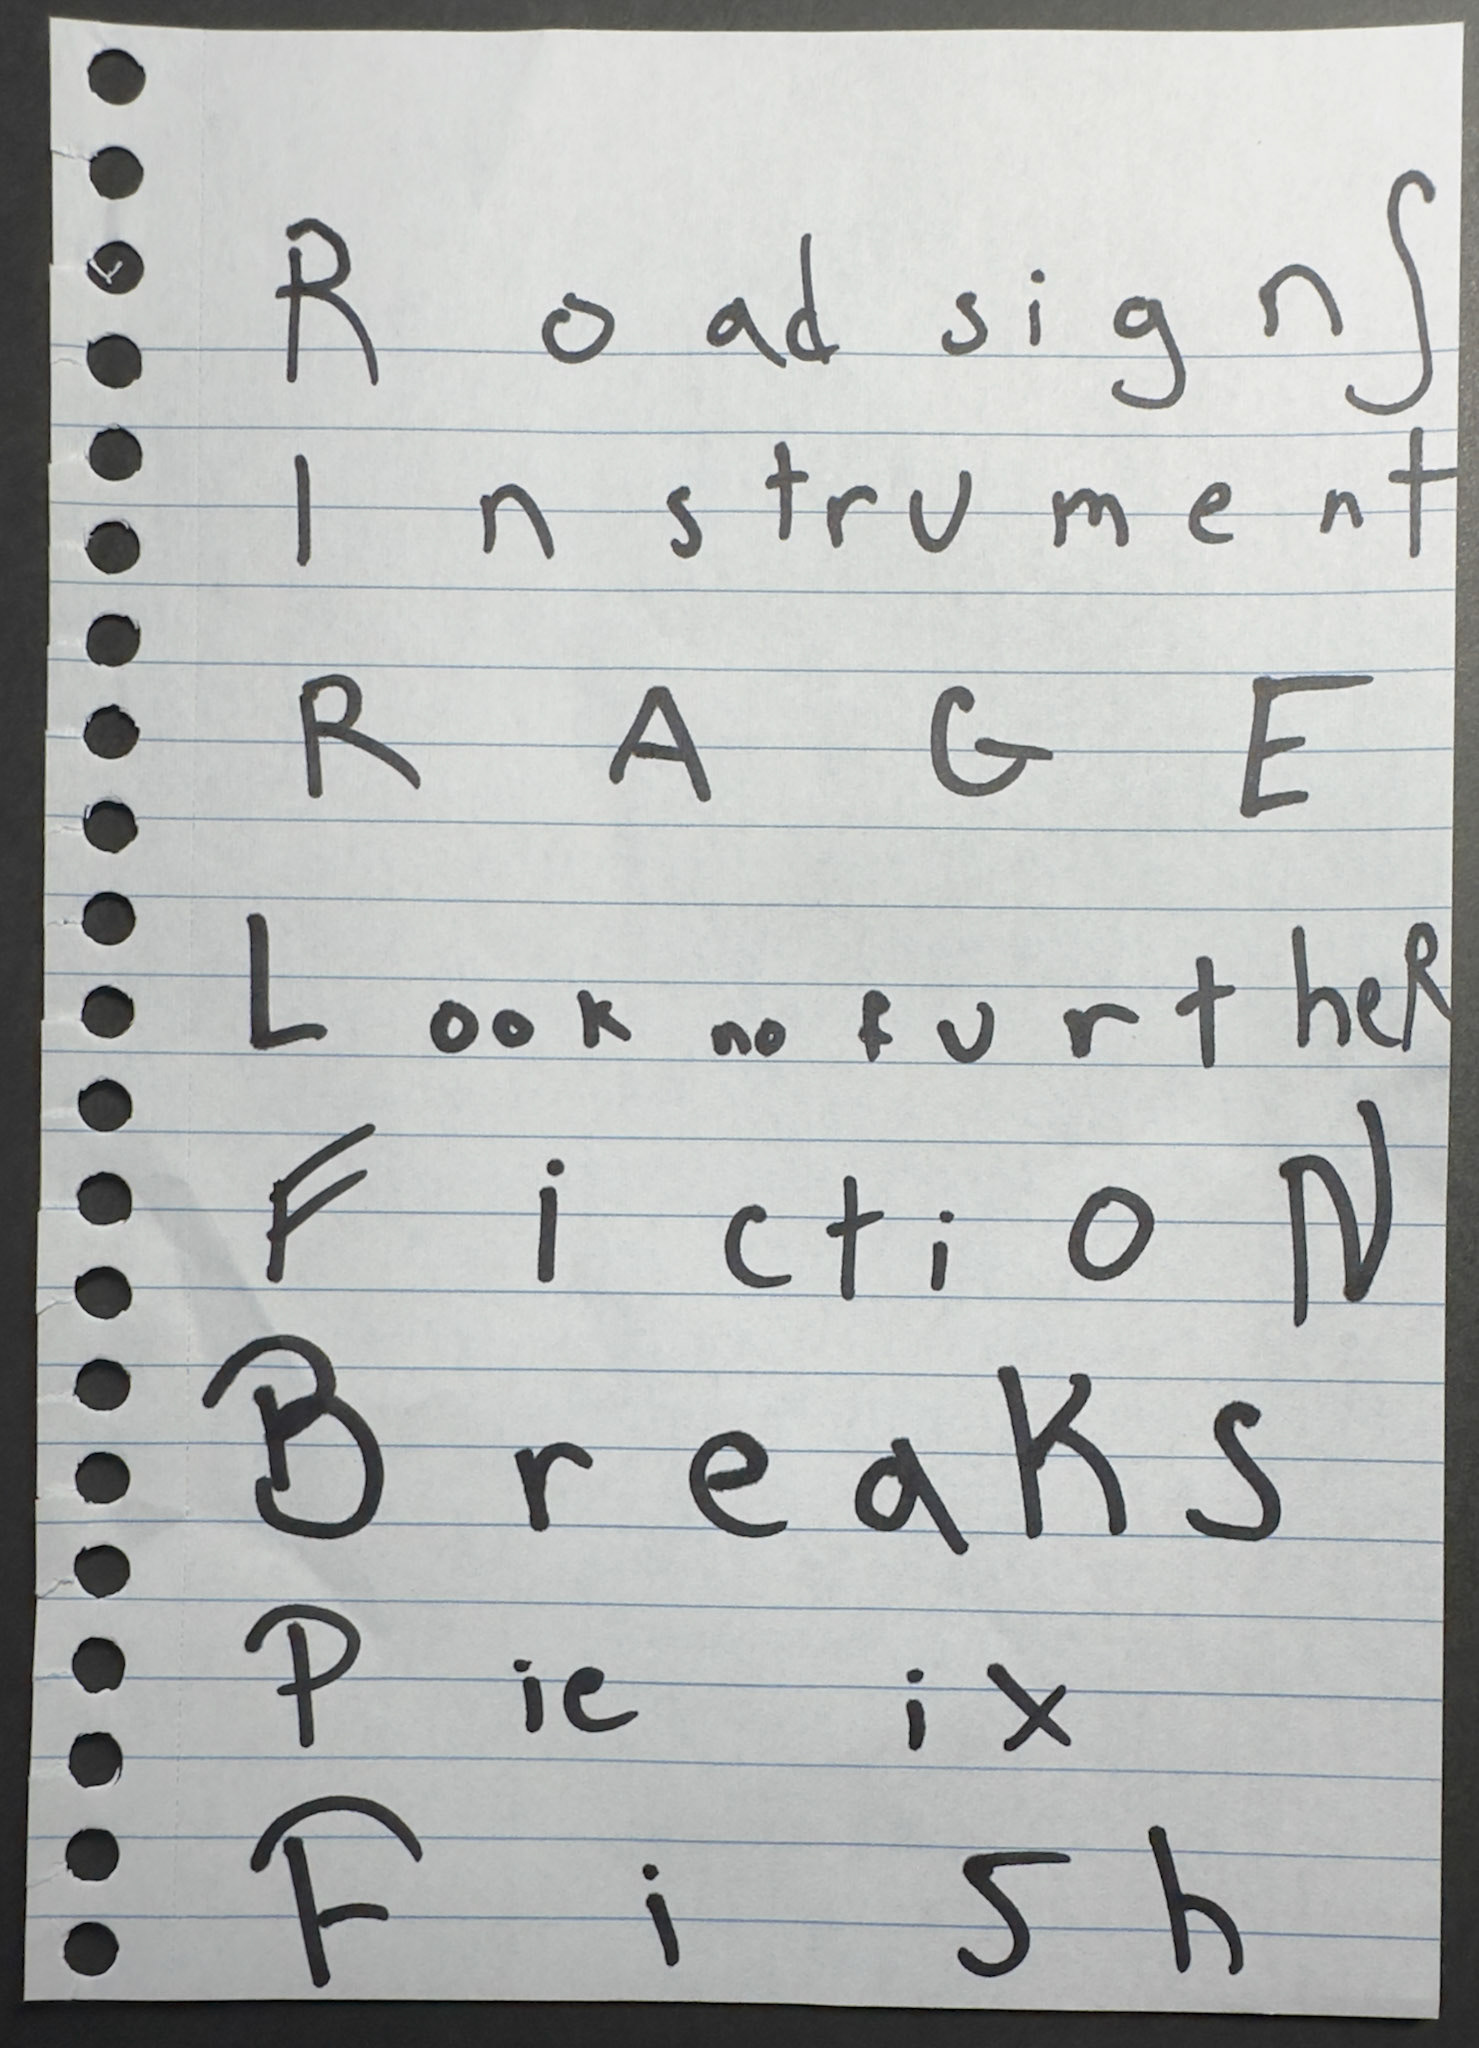 Road signs
Instrument
RAGE
Look no furtheR
FictioN
BreaKS
Pie ix
Fish